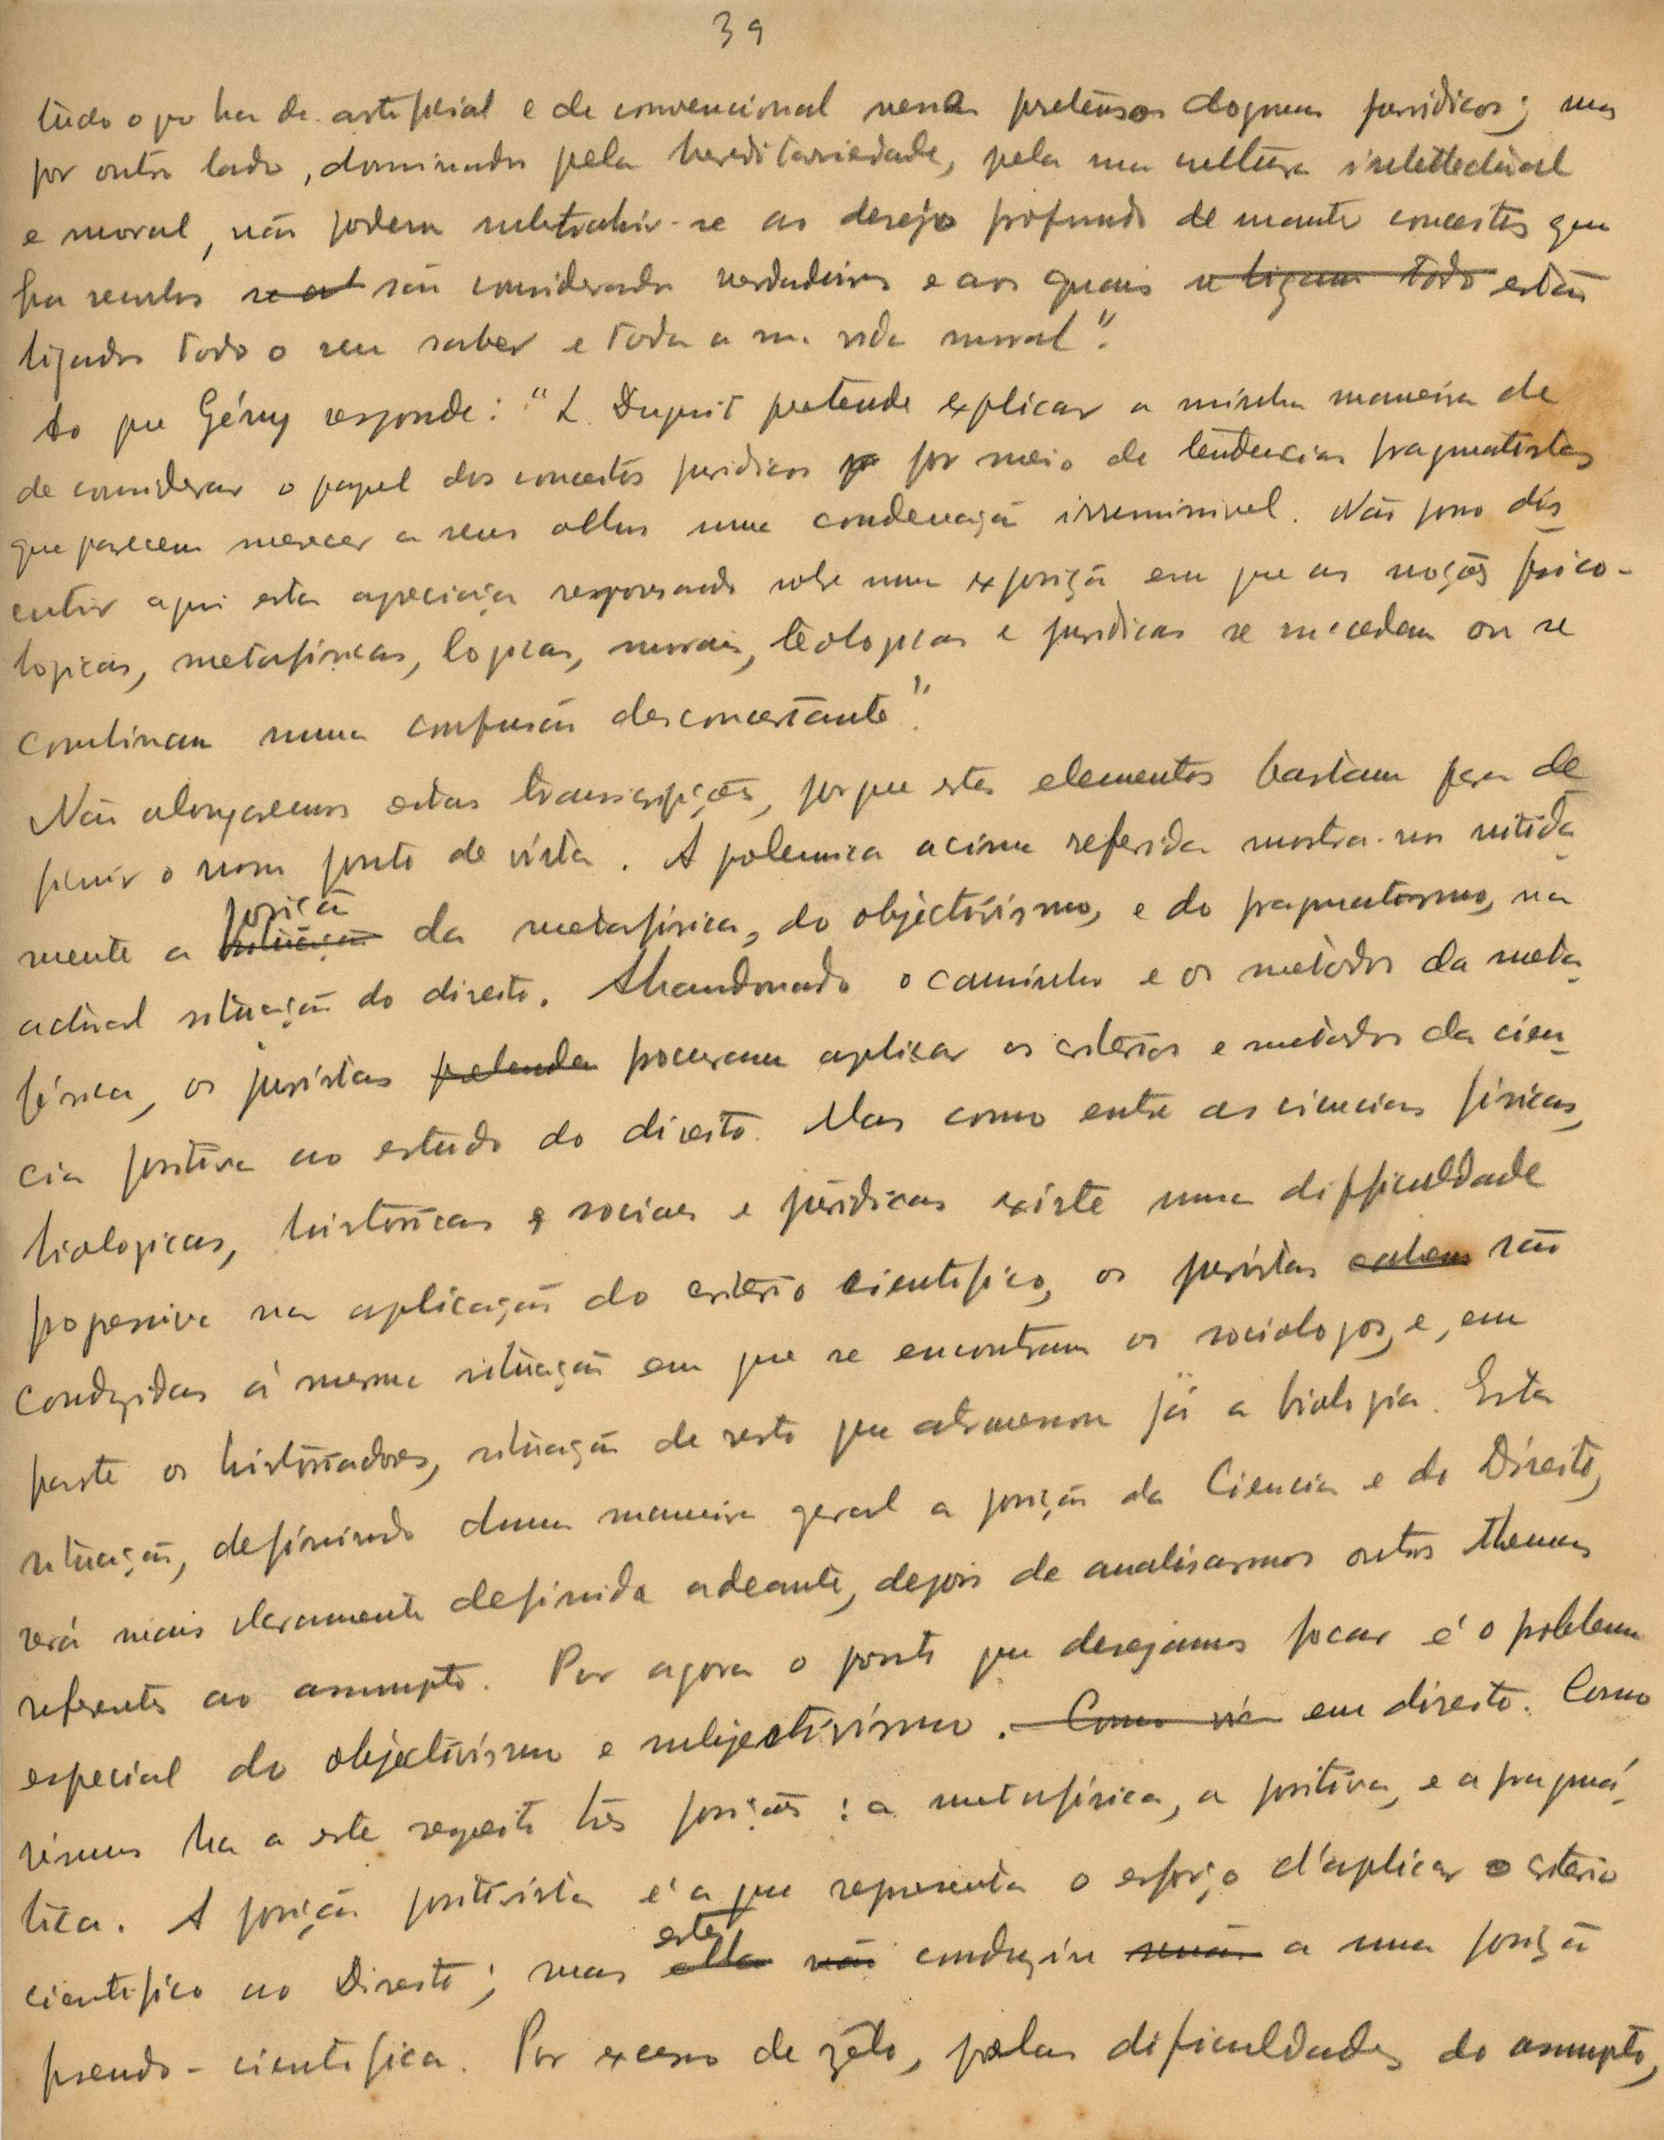 39
tudo o que ha de artificial e de convencional nesses pretensos dogmas juridicos; mas
por outro lado, dominados pela hereditariedade, pela sua cultura intellectual
e moral, não podem subtrahir-se ao desejo profundo de manter conceitos que
ha seculos são considerados verdadeiros e aos quais se ligam todo estão
ligados todo o seu saber e toda a sua vida moral".
Ao que Gény responde: "L. Duguit pretende explicar a minha maneira de
de considerar o papel dos conceitos juridicos por meio de tendencias pragmatistas
que parecem merecer a seus olhos uma condenação irremissivel. Não posso dis-
cutir aqui esta apreciação repousando sobre uma exposição em que as noções psico-
logicas, metafisicas, logicas, morais, teologicas e juridicas se succedem ou se
combinam numa confusão desconcertante".
Não alongaremos estas transcripções, porque estes elementos bastam para de-
finir o nosso ponto de vista. A polemica acima referida mostra-nos nitida-
mente a posição situação da metafisica, do objectivismo, e do pragmatismo, na
actual situação do direito. Abandonado o caminho e os metodos da meta-
fisica, os juristas pretendem procuram aplicar os criterios e metodos da cien-
cia positiva ao estudo do direito. Mas como entre as ciencias fisicas,
biologicas, historicas e sociaes e juridicas existe uma difficuldade
progressiva na aplicação do criterio cientifico, os juristas cahem são
conduzidos á mesma situação em que se encontram os sociologos, e, em
parte os historiadores, situação de resto que atravessou já a biologia. Esta
situação, definindo duma maneira geral a posição da Ciencia e do Direito,
será mais claramente definida adeante, depois de analisarmos outros themas
referentes ao assumpto. Por agora o ponto que desejamos focar é o problema
especial do objectivismo e subjectivismo. Como vi em direito. Como
vimos ha a este respeito três posições: a metafisica, a positiva, e a pragmá-
tica. A posição positivista é a que representa o esforço d'aplicar o criterio
cientifico ao Direito; mas este ella não conduziu senão a uma posição
pseudo-cientifica. Por excesso de zêlo, pelas dificuldades do assumpto,